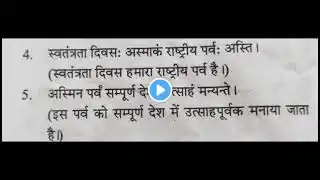 4. स्वतंत्रता दिवसः अस्माकं राष्ट्रीय पर्वः अस्ति।
(स्वतंत्रता दिवस हमारा राष्ट्रीय पर्व है।)
5. अस्मिन पर्वं सम्पूर्ण दे उत्साहं मन्यन्ते।
(इस पर्व को सम्पूर्ण देश में उत्साहपूर्वक मनाया जाता
है।)